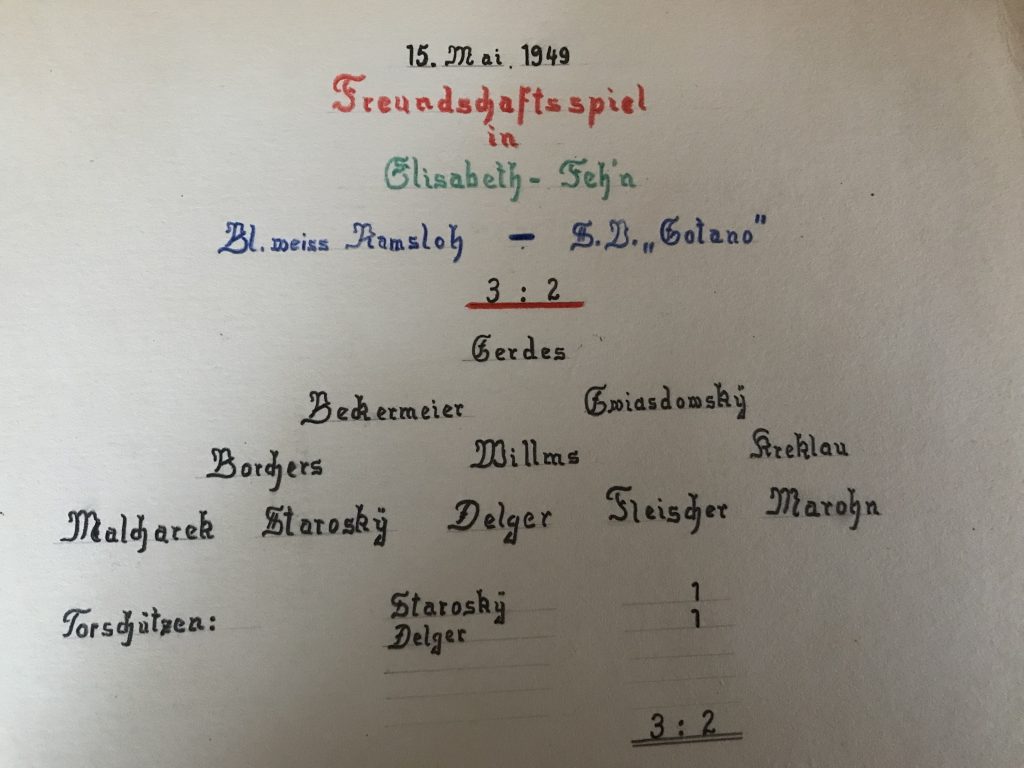 15. Mai. 1949
Freundschaftsspiel
in
Elisabeth-Feh'n
Bl. weiss Ramsloh - S.V. „Gotano"
3 : 2
Gerdes
Beckermeier Gwiasdowskÿ
Borchers Willms Kreklau
Malcharek Staroskÿ Delger Fleischer Marohn
Torschützen: Staroskÿ 1
Delger 1
3 : 2